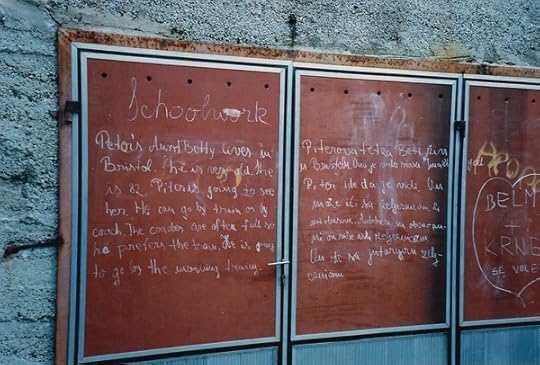 Schoolwork
Peter's Aunt Betty lives in
Bristol. She is very old she
is 82 Peter is going to see
her. He can go by train or by
coach. The coaches are often full so
he prefers the train. He is going
to go by the morning train.
Piterova tetka Beti živi
u Bristolu Ona je vrlo stara
Piter ide da je vidi. On
može ići sa željeznicom ili
autobusom. Autobusi su
On će sa jutarnjom želj
eznicom
BELM
KRNE
SE VOLE